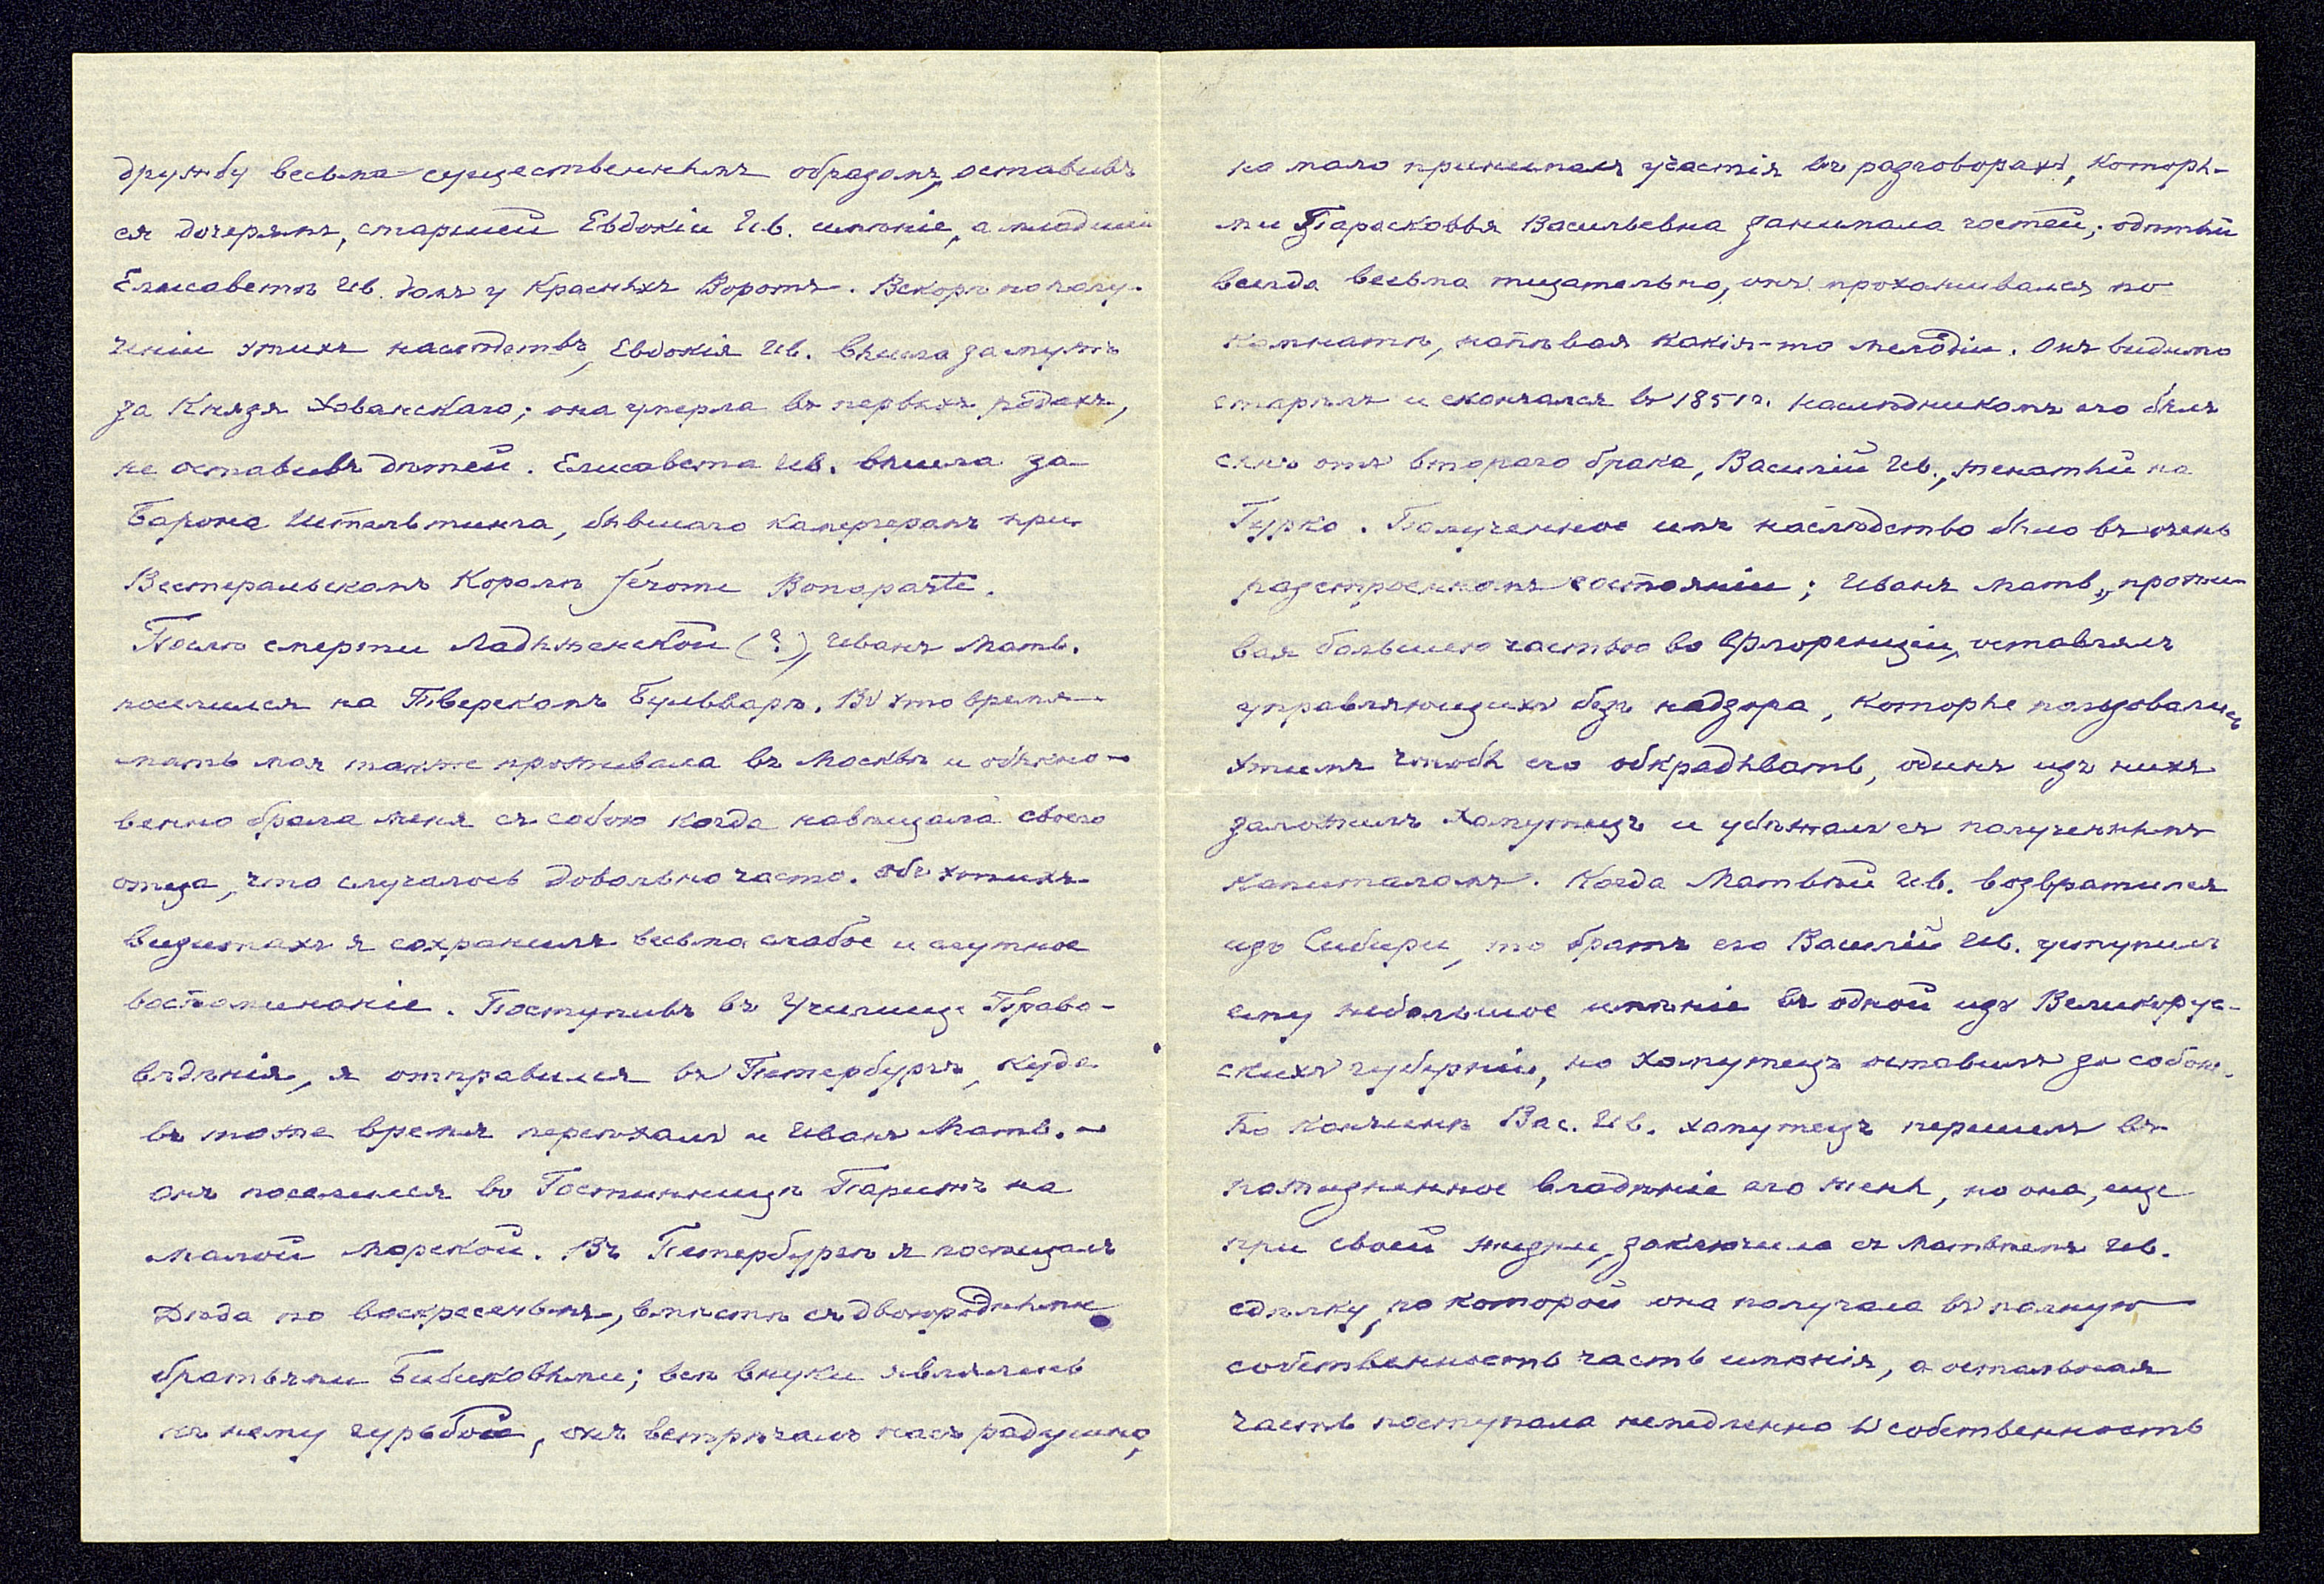 дружбу весьма существеннымъ образомъ, оставивъ
ея дочерямъ, старшей Евдокіи Ив. имѣніе, а младшей
Елисаветѣ Ив. домъ у Красныхъ Воротъ. Вскорѣ по полу-
ченіи этихъ наслѣдствъ, Евдокія Ив. вышла замужъ
за Князя Хованскаго; она умерла въ первыхъ родахъ,
не оставивъ дѣтей. Елисавета Ив. вышла за
Барона Иттельтинга, бывшаго камергеромъ при
Вестфальскомъ Королѣ Jérome Bonaparte.
Послѣ смерти Ладыженской (?), Иванъ Матв.
поселился на Тверскомъ Бульварѣ. Въ это время
мать моя также проживала въ Москвѣ и обыкно-
венно брала меня съ собою когда навѣщала своего
отца, что случалось довольно часто. Объ этихъ
визитахъ я сохранилъ весьма слабое и смутное
воспоминаніе. Поступивъ въ Училище Право-
вѣдѣнія, я отправился въ Петербургъ, куда
въ тоже время переѣхалъ и Иванъ Матв.
Онъ поселился въ Гостинницѣ Парижъ на
Малой Морской. Въ Петербургѣ я посѣщалъ
Дѣда по воскресеньямъ, вмѣстѣ съ двоюродными
братьями Бибиковыми; всѣ внуки являлись
къ нему гурьбой, онъ встрѣчалъ насъ радушно,
но мало принималъ участія въ разговорахъ, которы-
ми Парасковья Васильевна занимала гостей; одѣтый
всегда весьма тщательно, онъ прохаживался по
комнатѣ, напѣвая какія-то мелодіи. Онъ видимо
старѣлъ и скончался въ 1851г. Наслѣдникомъ его былъ
сынъ отъ второго брака, Василій Ив., женатый на
Гурко. Полученное имъ наслѣдство было въ очень
разстроенномъ состояніи; Иванъ Матв., прожи-
вая большею частью во Флоренціи, оставлялъ
управляющихъ безъ надзора, которые пользовались
этимъ чтобы его обкрадывать, одинъ изъ нихъ
заложилъ Хомутецъ и убѣжалъ съ полученнымъ
капиталомъ. Когда Матвѣй Ив. возвратился
изъ Сибири, то братъ его Василій Ив. уступилъ
ему небольшое имѣніе въ одной изъ Великорус-
скихъ губерній, но Хомутецъ оставилъ за собою.
По кончинѣ Вас. Ив. Хомутецъ перешелъ въ
пожизненное владѣніе его жены, но она, еще
при своей жизни, заключила съ Матвѣемъ Ив.
сдѣлку, по которой она получала въ полную
собственность часть имѣнія, а остальная
часть поступала немедленно въ собственность